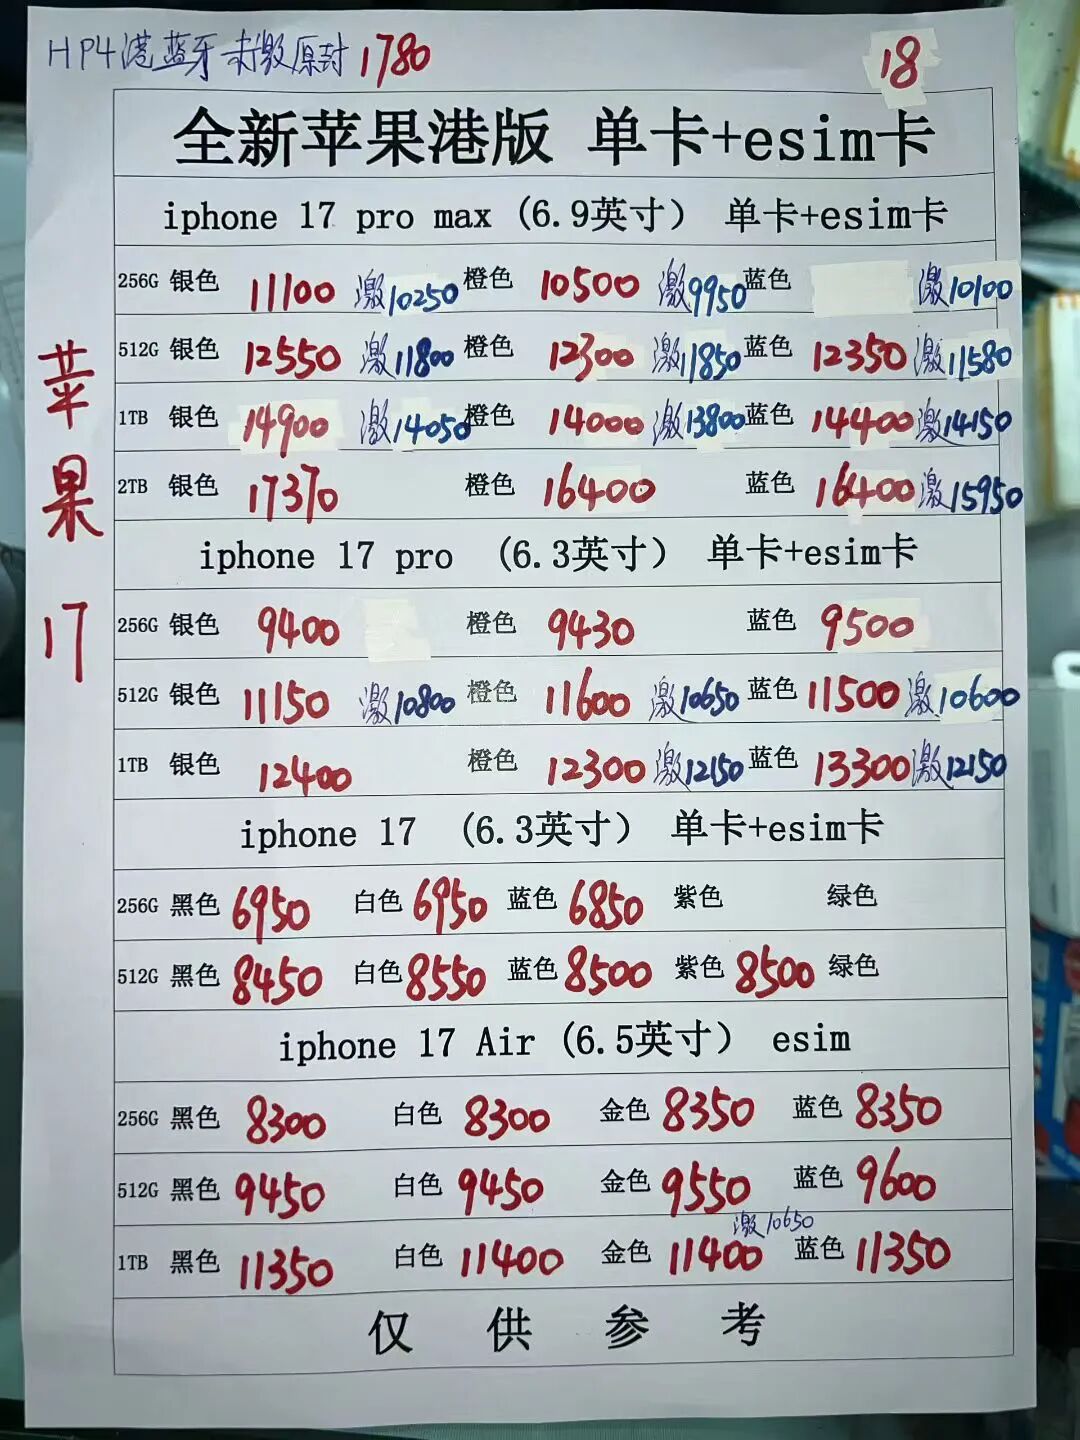 HP4港蓝牙未激原封 1780
18
全新苹果港版 单卡+esim卡
iphone 17 pro max (6.9英寸) 单卡+esim卡
256G 银色 11100 激10250 橙色 10500 激9950 蓝色 激10100
512G 银色 12550 激11800 橙色 12300 激11850 蓝色 12350 激11580
1TB 银色 14900 激14050 橙色 14000 激13800 蓝色 14400 激14150
2TB 银色 17370 橙色 16400 蓝色 16400 激15950
苹果 17
iphone 17 pro (6.3英寸) 单卡+esim卡
256G 银色 9400 橙色 9430 蓝色 9500
512G 银色 11150 激10800 橙色 11600 激10650 蓝色 11500 激10600
1TB 银色 12400 橙色 12300 激12150 蓝色 13300 激12150
iphone 17 (6.3英寸) 单卡+esim卡
256G 黑色 6950 白色 6950 蓝色 6850 紫色 绿色
512G 黑色 8450 白色 8550 蓝色 8500 紫色 8500 绿色
iphone 17 Air (6.5英寸) esim
256G 黑色 8300 白色 8300 金色 8350 蓝色 8350
512G 黑色 9450 白色 9450 金色 9550 蓝色 9600
激10650
1TB 黑色 11350 白色 11400 金色 11400 蓝色 11350
仅供参考